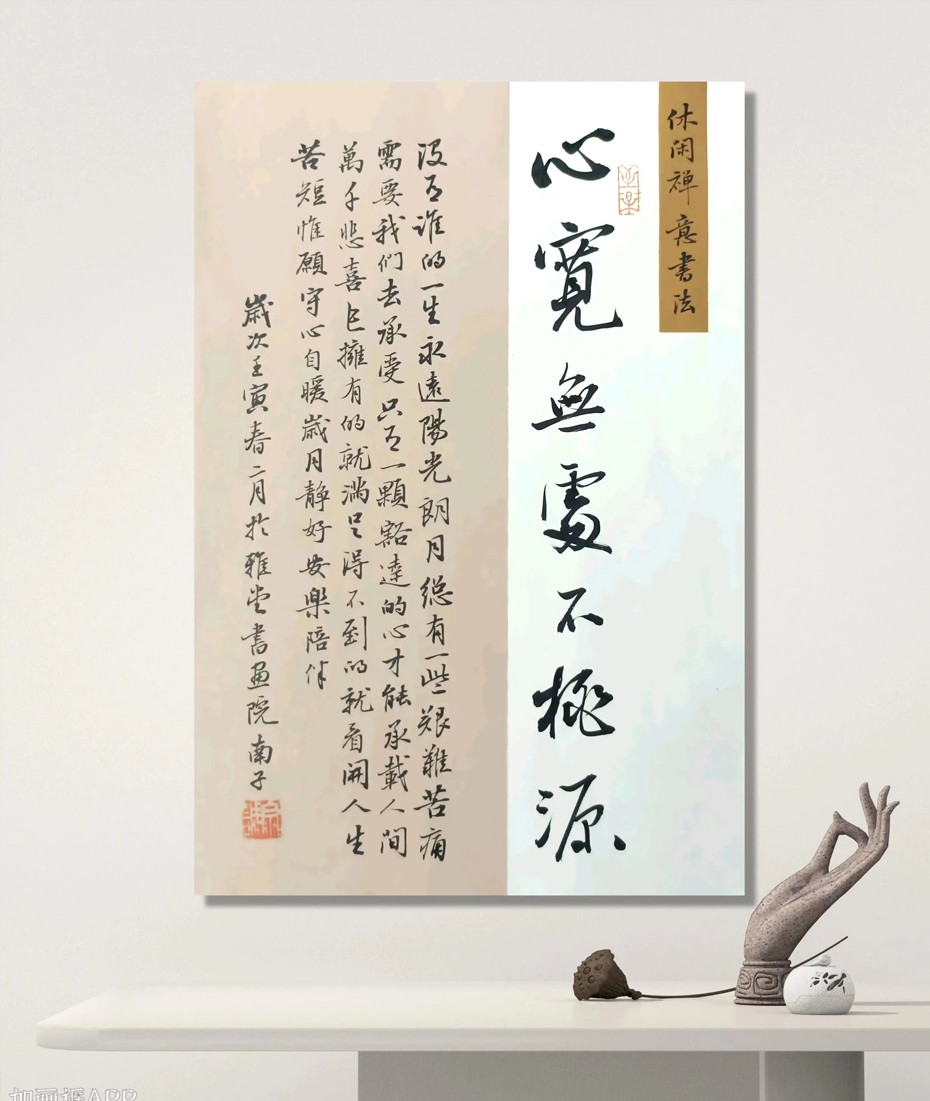 休闲禅意書法
心寬無處不桃源
没有谁的一生永遠陽光朗月總有一些艱難苦痛
需要我们去承受只有一顆豁達的心才能承載人间
萬千悲喜已擁有的就满足得不到的就看開人生
苦短惟願守心自暖歲月静好安樂陪伴
歲次壬寅春二月於雅堂書畫院南子